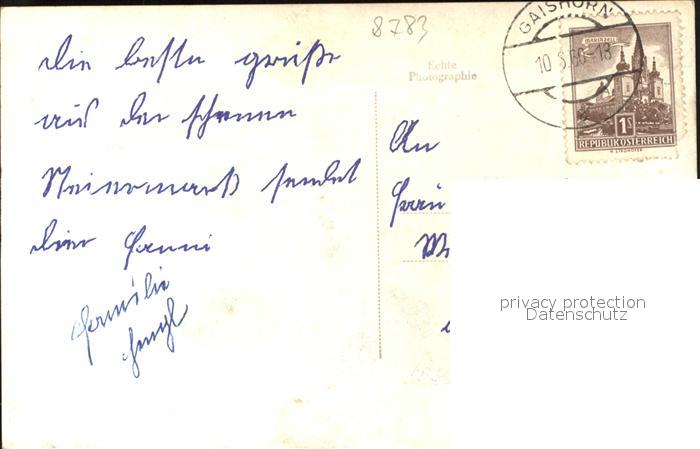 8783
GAISHORN
10.3.66-18
MARIAZELL
1S
REPUBLIK ÖSTERREICH
Echte
Photographie
die beste grüße
aus der schönen
Steiermark sendet
dier Fanni
Familie
An
Frau
privacy protection
Datenschutz